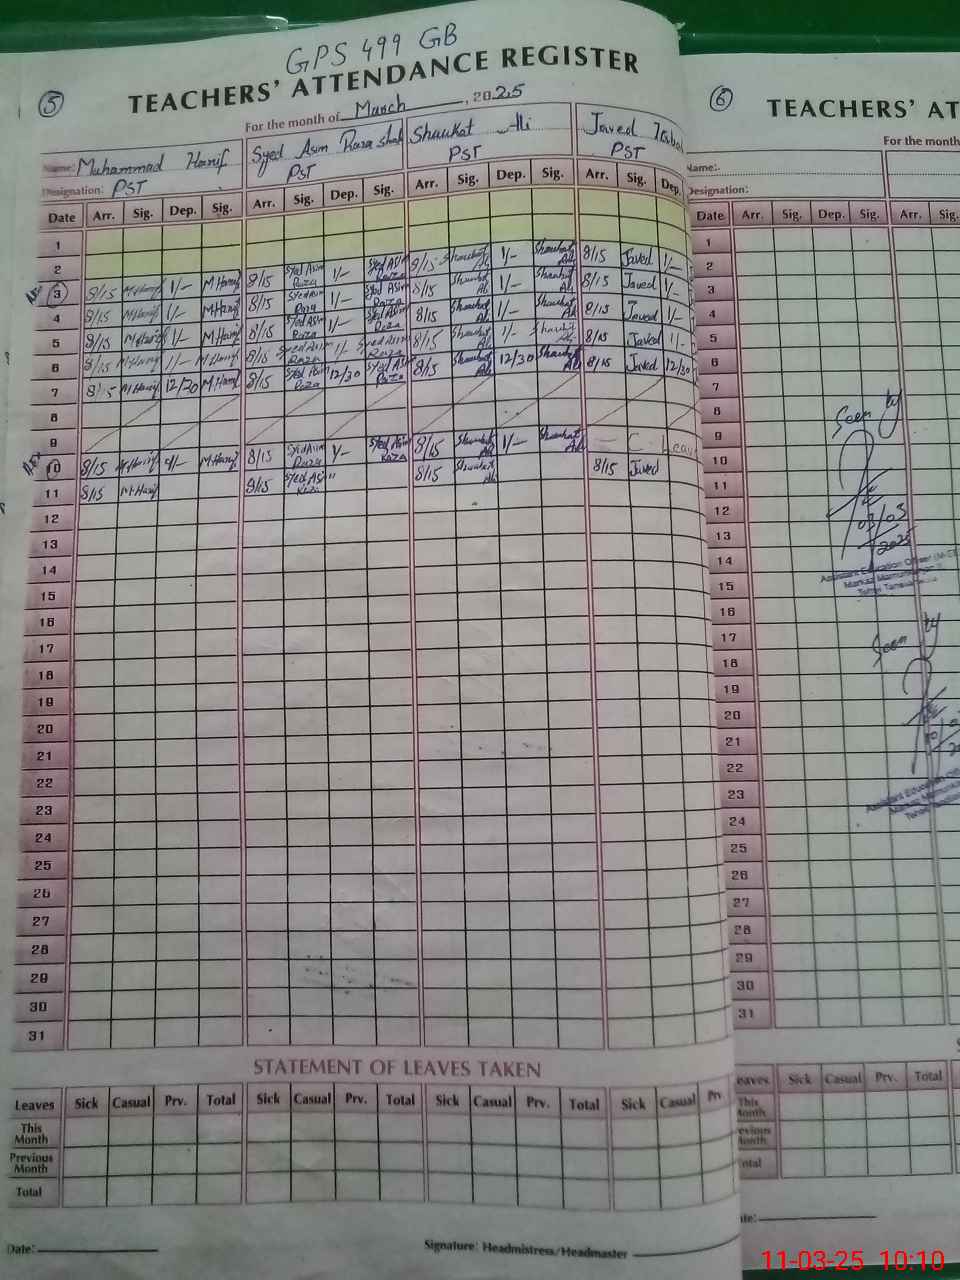 GPS 499 GB
TEACHERS' ATTENDANCE REGISTER
5
For the month of March, 2025
Name: Muhammad Hanif Syed Asim Raza Shah Shaukat Ali Javed
Designation: PST PST PST PST
Date Arr. Sig. Dep. Sig. Arr. Sig. Dep. Sig. Arr. Sig. Dep. Sig. Arr. Sig. Dep.
1
2
3 8/15 M.Hanif 1/- M.Hanif 8/15 Syed Asim Raza 1/- Syed Asim Raza 8/15 Shaukat Ali 1/- Shaukat Ali 8/15 Javed 1/-
4 8/15 M.Hanif 1/- M.Hanif 8/15 Syed Asim Raza 1/- Syed Asim Raza 8/15 Shaukat Ali 1/- Shaukat Ali 8/15 Javed 1/-
5 8/15 M.Hanif 1/- M.Hanif 8/15 Syed Asim Raza 1/- Syed Asim Raza 8/15 Shaukat Ali 1/- Shaukat Ali 8/15 Javed 1/-
6 8/15 M.Hanif 1/- M.Hanif 8/15 Syed Asim Raza 1/- Syed Asim Raza 8/15 Shaukat Ali 1/- Shaukat Ali 8/15 Javed 1/-
7 8/15 M.Hanif 12/30 M.Hanif 8/15 Syed Asim Raza 12/30 Syed Asim Raza 8/15 Shaukat Ali 12/30 Shaukat Ali 8/15 Javed 12/30
8
9
10 8/15 M.Hanif 1/- M.Hanif 8/15 Syed Asim Raza 1/- Syed Asim Raza 8/15 Shaukat Ali 1/- Shaukat Ali C. Leav
11 8/15 M.Hanif 8/15 Syed Asim Raza 8/15 Shaukat Ali 8/15 Javed
12
13
14
15
16
17
18
19
20
21
22
23
24
25
26
27
28
29
30
31
STATEMENT OF LEAVES TAKEN
Leaves Sick Casual Prv. Total Sick Casual Prv. Total Sick Casual Prv. Total Sick Casual Prv
This Month
Previous Month
Total
Date:
Signature: Headmistress/Headmaster
6
TEACHERS' AT
For the month
Name:
Designation:
Date Arr. Sig. Dep. Sig. Arr. Sig.
1
2
3
4
5
6
7
8
9
10
11
12
13
14
15
16
17
18
19
20
21
22
23
24
25
26
27
28
29
30
31
Seen by
03/03
2025
Assistant Education Officer
Seen by
Assistant Education
eaves Sick Casual Prv. Total
This Month
revious Month
otal
ate:
11-03-25 10:10